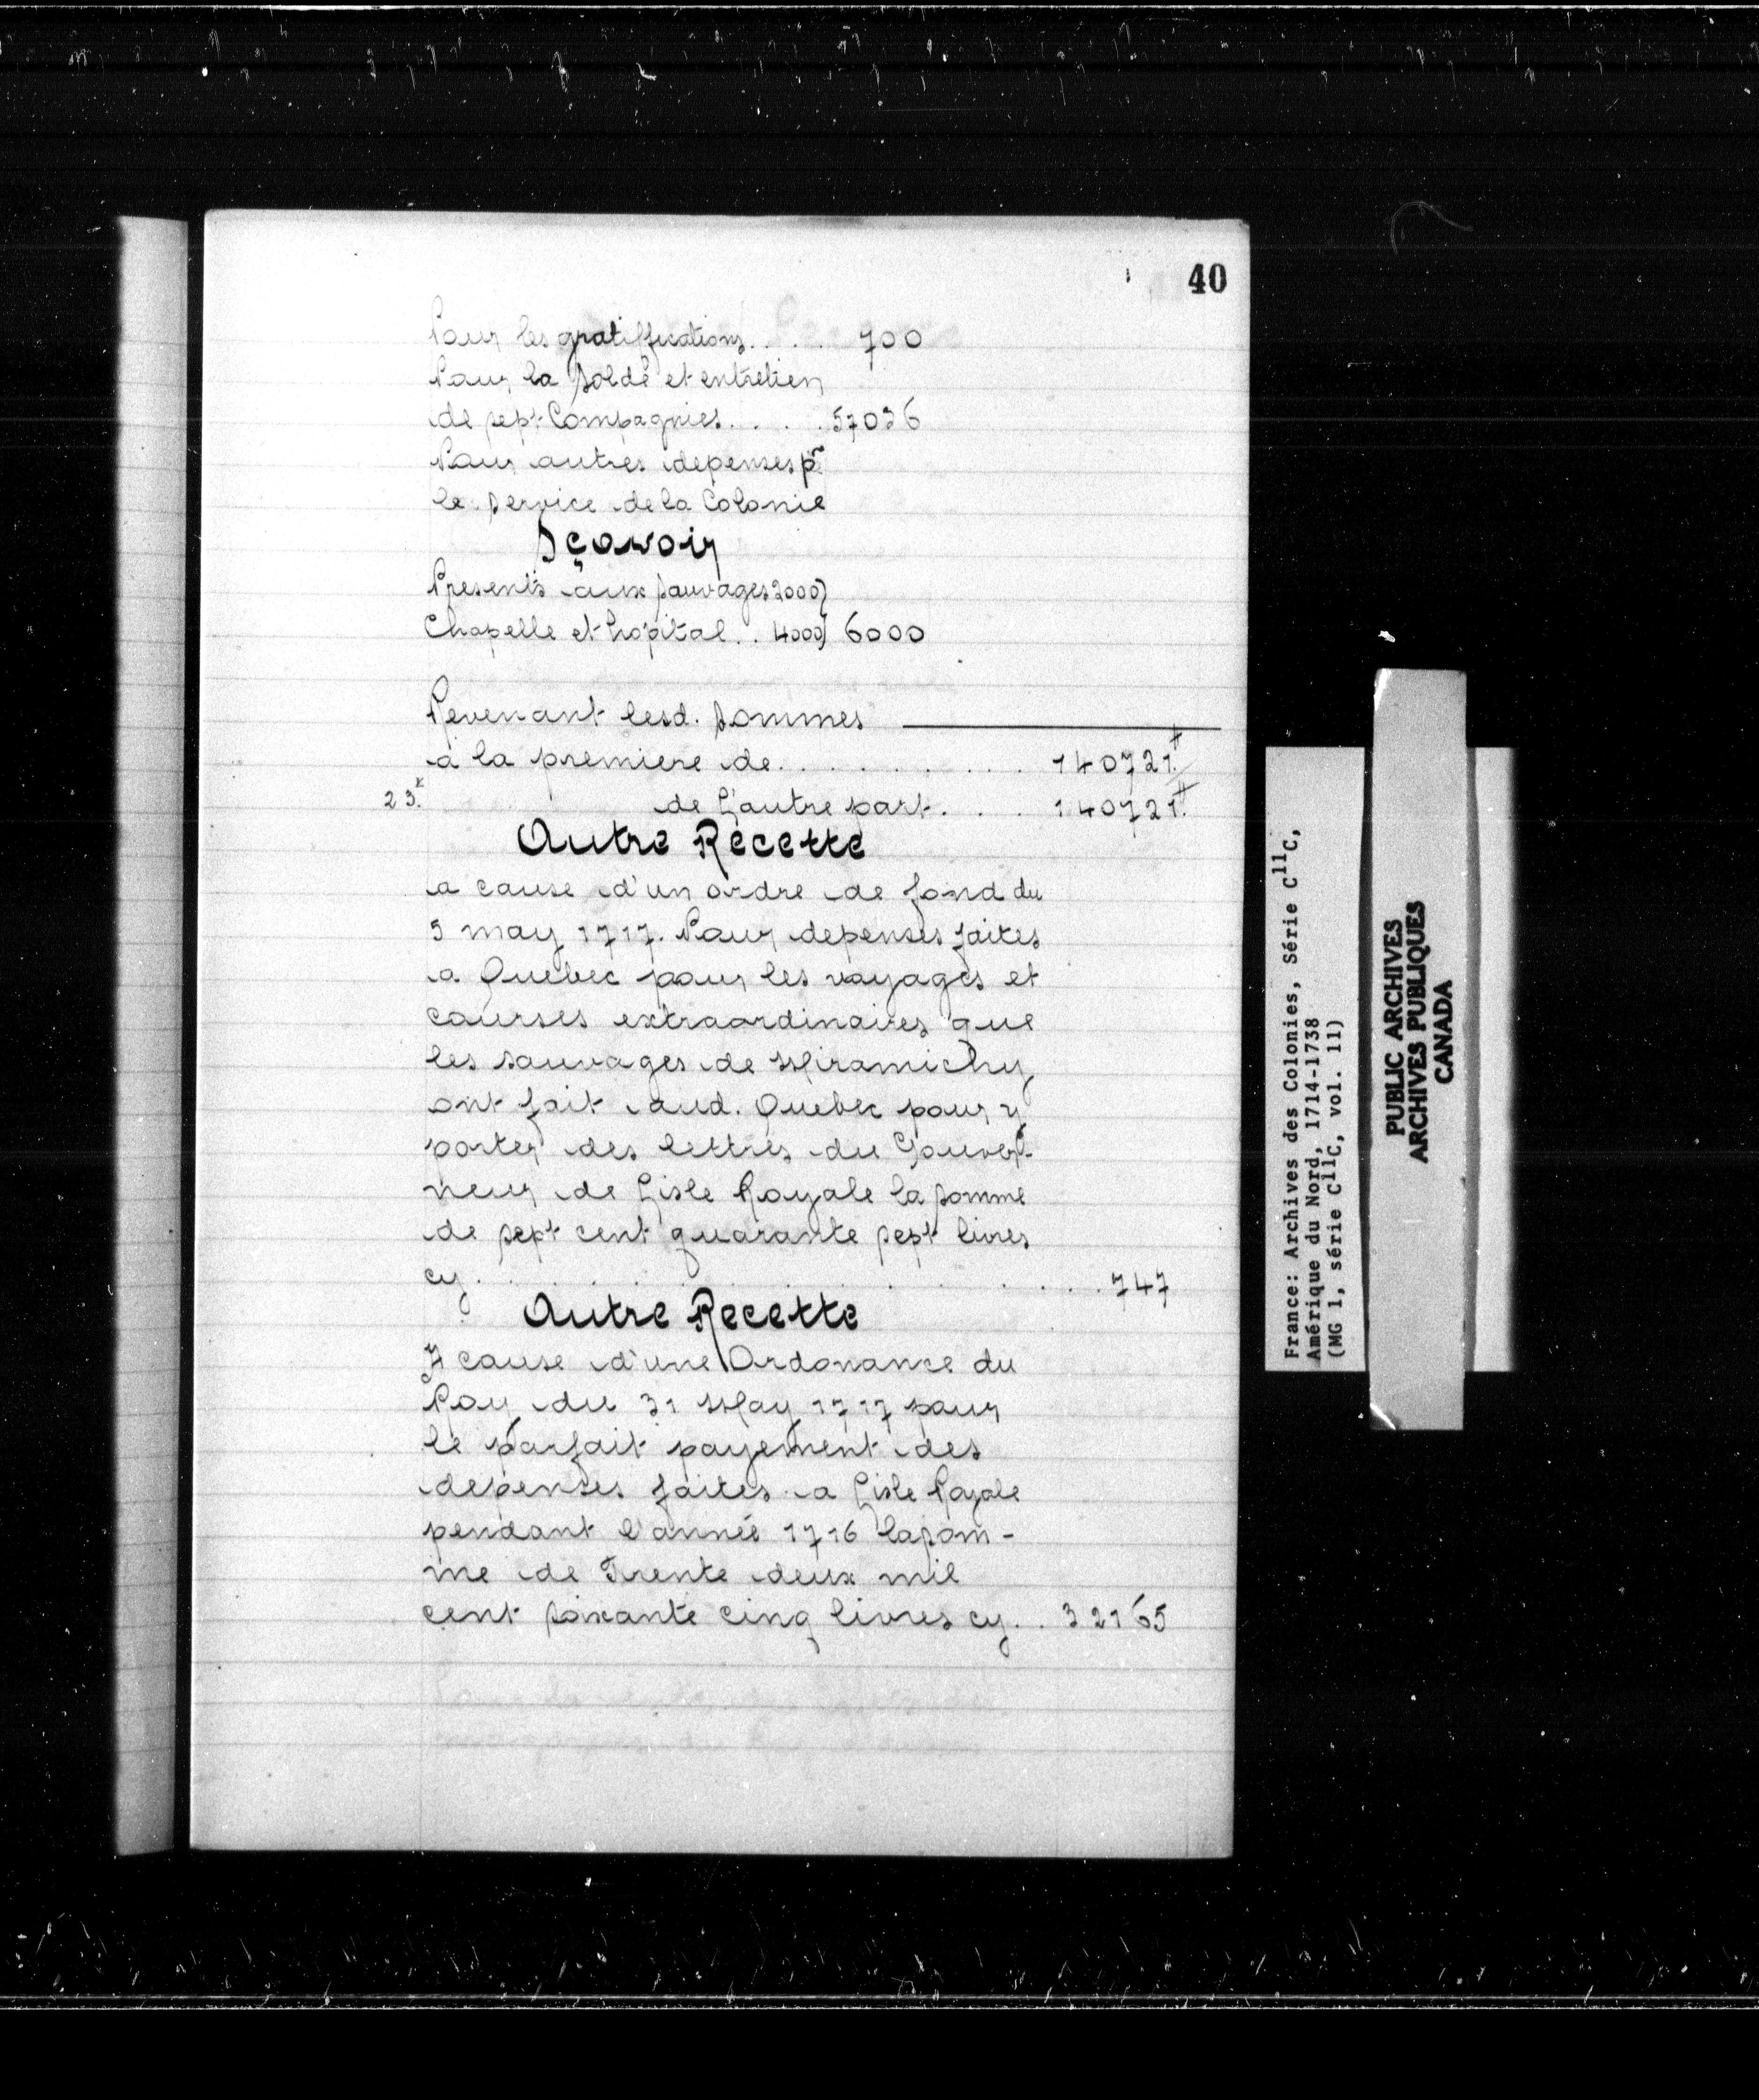 40
Pour les gratiffications..... 700
Pour la solde et entretien
de sept Compagnies..... 57036
Pour autres depenses pr
le service de la Colonie
Sçavoir
Presents aux sauvages 2000}
Chapelle et hopital.. 4000} 6000
Revenant lesd. sommes
à la premiere de........... 140721.
23. de L'autre part.... 140721.
Autre Recette
a cause d'un ordre de fond du
5 may 1717. Pour depenses faites
a Quebec pour les voyages et
courses extraordinaires que
les sauvages de Miramichy
ont fait aud. Quebec pour y
porter des lettres du Gouver-
neur de Lisle Royale la somme
de sept cent quarante sept livres
cy..................747
Autre Recette
A cause d'une Ordonance du
Roy du 31 May 1717 pour
le parfait payement des
depenses faites a Lisle Royale
pendant l'année 1716 la som-
me de Trente deux mil
cent soixante cinq livres cy... 32165
France: Archives des Colonies, Série C11C,
Amérique du Nord, 1714-1738
(MG 1, série C11C, vol. 11)
PUBLIC ARCHIVES
ARCHIVES PUBLIQUES
CANADA